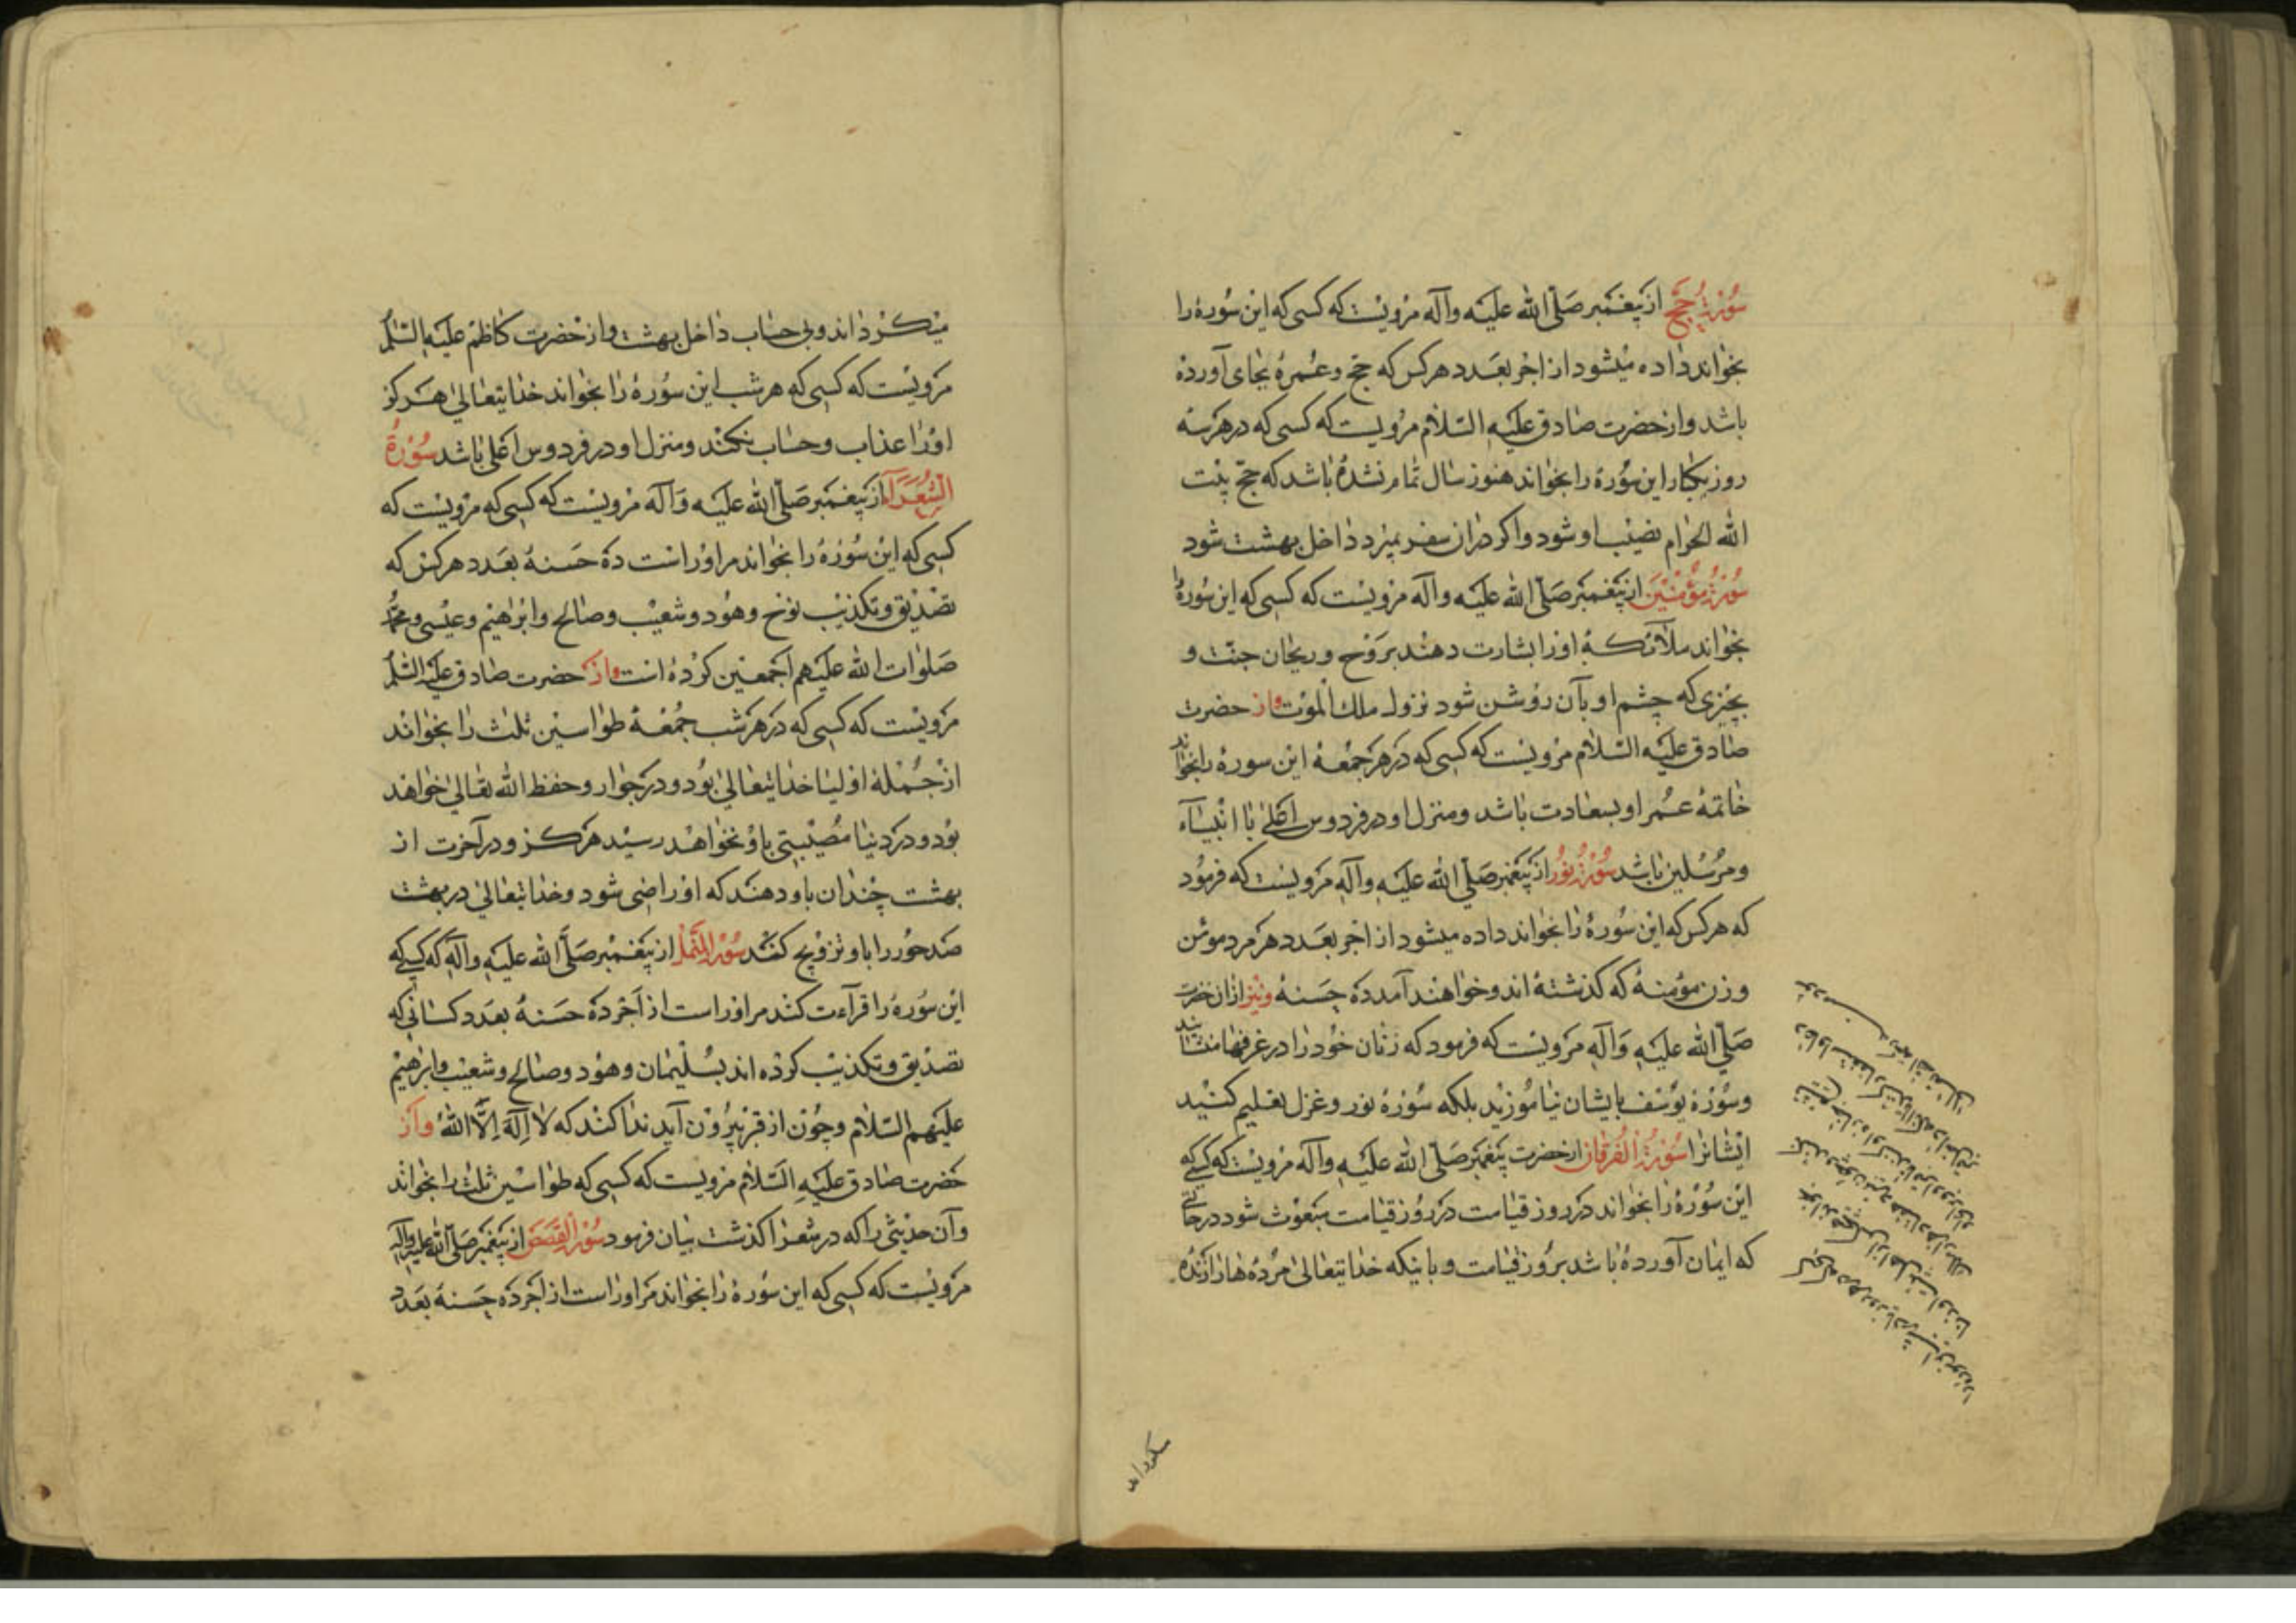 سُورَةُ حَجّ از پیغمبر صَلّی الله علیه وآله مرویست که کسی که این سُوره را
بخواند داده میشود از اجر بعدد هر کس که حج وعُمره بجای آورده
باشد واز حضرت صادق علیه السّلام مرویست که کسی که در هر سه
روز یکبار این سُوره را بخواند هنوز سال تمام نشده باشد که حجّ بیت
الله الحرام نصیب او شود واکر در ان سفر بمیرد داخل بهشت شود
سُورَةُ مُؤْمِنین از پیغمبر صَلّی الله علیه وآله مرویست که کسی که این سُوره را
بخواند ملآئکه اورا بشارت دهند بِرَوْح وریحان جنّت و
بچیزی که چشم او بآن روشن شود نزول ملك الموت واز حضرت
صادق علیه السّلام مرویست که کسی که در هر جمعه این سوره را بخواند
خاتمهٔ عمر او بسعادت باشد ومنزل او در فردوس اعلی با انبیآء
ومرسلین باشد سُورَةُ نُور از پیغمبر صَلّی الله علیه وآله مرویست که فرمود
که هر کس که این سُوره را بخواند داده میشود از اجر بعدد هر مرد مؤمن
وزن مؤمنه که کذشته اند وخواهند آمد ده حسنه ونیز از ان حضرت
صَلّی الله علیه وَآلِه مرویست که فرمود که زنان خود را در غرفها منشانید
وسُورهٔ یوسف بایشان نیاموزید بلکه سُورهٔ نور وغزل تعلیم کنید
ایشانرا سُورَةُ الفُرقان از حضرت پیغمبر صَلّی الله علیه وآله مرویست که کسی که
این سُوره را بخواند در روز قیامت در روز قیامت مبعوث شود در حالتی
که ایمان آورده باشد بروز قیامت وباینکه خدایتعالی مرده ها را زنده
میکرداند
میکرداند وبی حساب داخل بهشت واز حضرت کاظم علیه السّلام
مرویست که کسی که هر شب این سُوره را بخواند خدایتعالی هرکز
اورا عذاب وحساب نکند ومنزل او در فردوس اعلی باشد سُورَةُ
الشُعَرَآء از پیغمبر صَلّی الله علیه وَآله مرویست که کسی که مرویست که
کسی که این سُوره را بخواند مر اوراست ده حَسَنه بعدد هر کس که
تصدیق وتکذیب نوح وهُود وشعیب وصالح وابرهیم وعیسی ومحمّد
صلوات الله علیهم اجمعین کرده است واز حضرت صادق علیه السّلام
مرویست که کسی که در هر شب جُمُعه طواسین ثلث را بخواند
از جُمله اولیا خدایتعالی بود ودر جوار وحفظ الله تعالی خواهد
بود ودر دنیا مُصیبتی باو نخواهد رسید هرکز ودر آخرت از
بهشت چندان باو دهند که او راضی شود وخدایتعالی در بهشت
صد حور را باو تزویج کند سُورَةُ النَّمل از پیغمبر صَلّی الله علیه وآله که کسی که
این سُوره را قرآءت کند مر اوراست از اَجْر ده حَسَنه بعدد کسانی که
تصدیق وتکذیب کرده اند بسُلیمان وهود وصالح وشعیب وابرهیم
علیهم السّلام وچون از قبر بیرون آید ندا کند که لا اِلهَ اِلَّا اللهُ وَاز
حضرت صادق علیه السّلام مرویست که کسی که طواسین ثلث را بخواند
وآن حدیثی را که در شعرا کذشت بیان فرمود سُورَةُ القَصَص از پیغمبر صَلّی الله علیه وآله
مرویست که کسی که این سُوره را بخواند مر اوراست از اجر ده حسنه بعدد